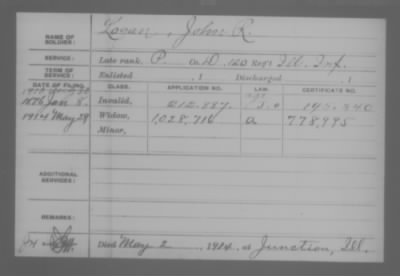 NAME OF SOLDIER: John R.
SERVICE: Late rank, P. Co. D, 120 Reg't Ill. Inf.
TERM OF SERVICE: Enlisted , 1 Discharged , 1
DATE OF FILING. CLASS. APPLICATION NO. LAW. CERTIFICATE NO.
1876 Jan 8. Invalid, 212.887.
1914 May 28 Widow, 1,028,716 a 778,995
Minor,
ADDITIONAL SERVICES:
REMARKS:
Died May 2, 1914, at Junction, Ill.